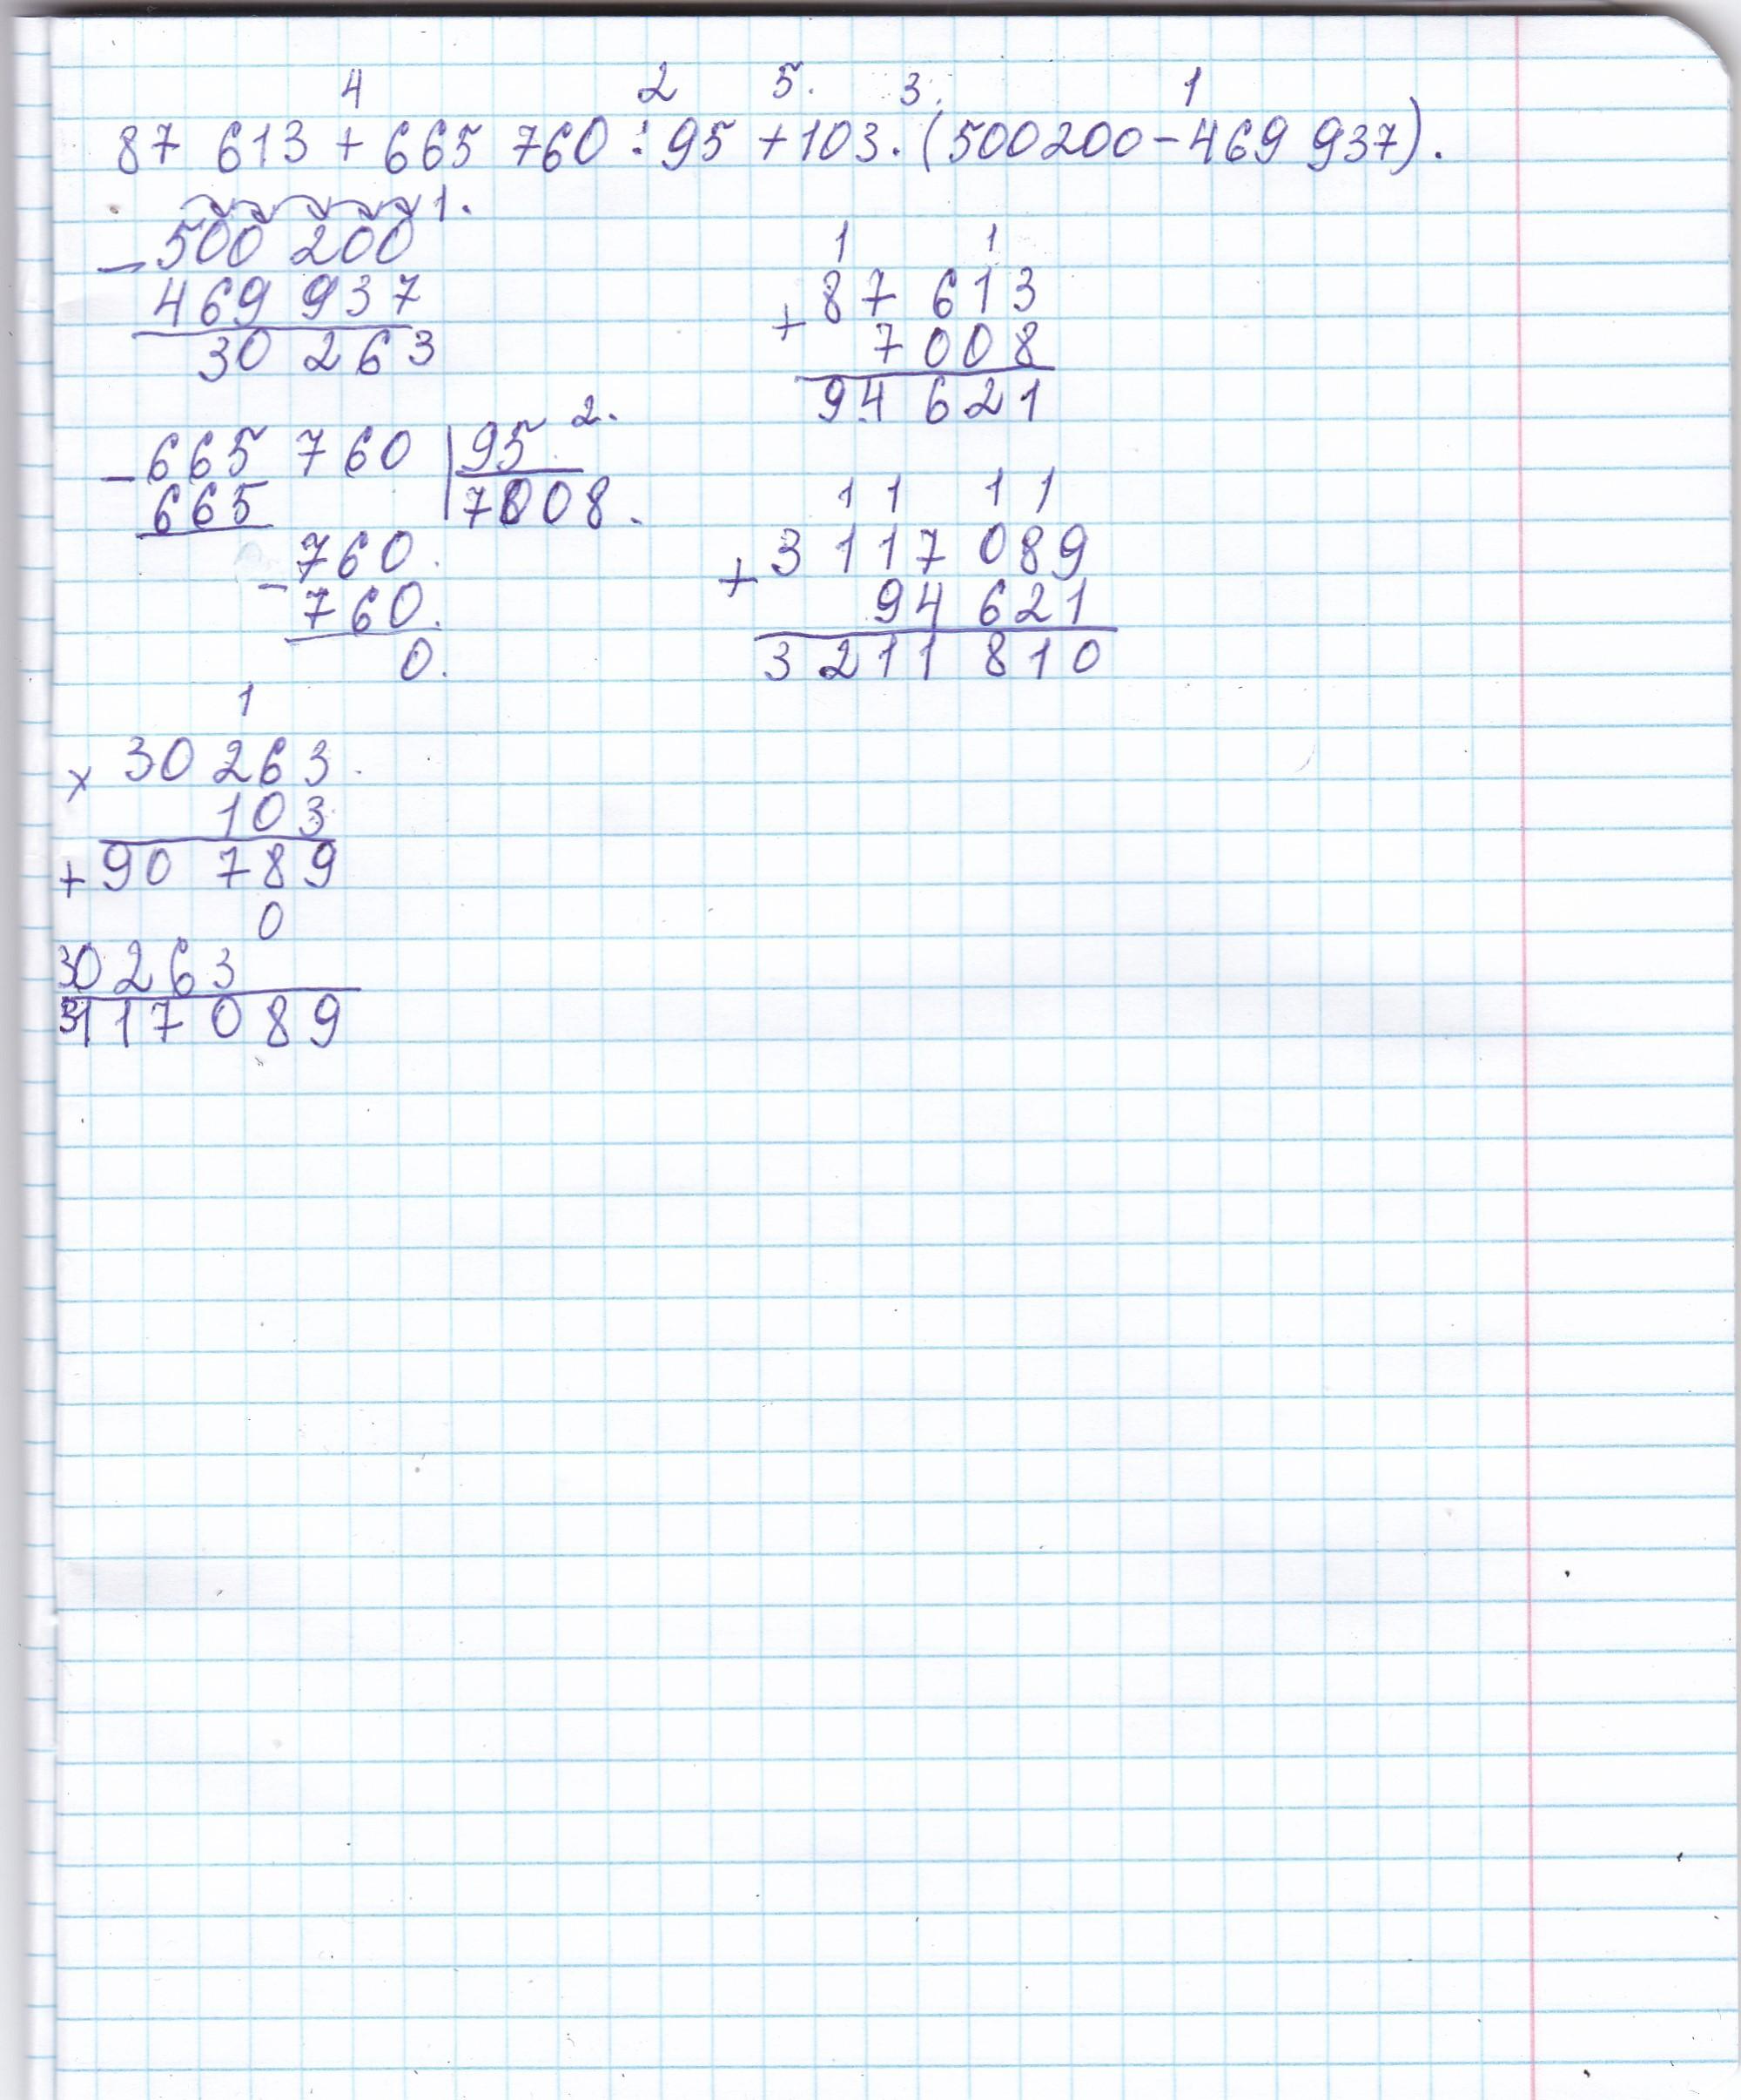 4 2 5. 3. 1
87 613 + 665 760 : 95 + 103 . (500200 - 469 937).
1.
- 500 200
469 937
30 263
2.
- 665 760 | 95
665 7008.
760.
- 760.
0.
1
× 30 263
103
+ 90 789
0
30 263
3117 089
1 1
+ 87 613
7 008
94 621
1 1 1 1
+ 3 117 089
94 621
3 211 810